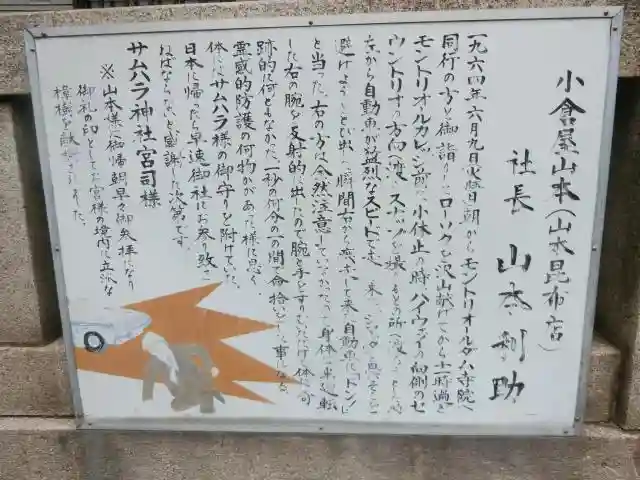 小倉屋山本（山本昆布店）
社長　山本利助
一九六四年六月九日火曜日朝からモントリオルダハ寺院へ
同行の方と御詣りしローソクを沢山献げてから十一時過ぎ
モントリオルカレッジ前で小休止の時ハイウェイの向側のセ
ウントリオの方向へ渡りスナップを撮りもとの所へ渡ろうとした時
左から自動車が猛烈なスピードで走って来たのでジャックと思ってこれを
避けようととび出した瞬間右から疾走して来た自動車にドンン
と当った。右の方は全然注意していなかった。身体が半廻転
した右の腕を反射的に出したので腕と手とすりむいただけで体は何
跡的に何ともなかった。一秒の何分の一の間で命拾いした事になる。
霊感的防護の何物かがあった様に思う。
体にはサムハラ様の御守りを附けていた。
日本に帰ったら早速御社にお参り致さ
ねばならないと感謝した次第です。
サムハラ神社宮司様
※山本様は御帰朝早々御参拝になり
御礼の印としてお宮様の境内に立派な
樟樹を献木されました。